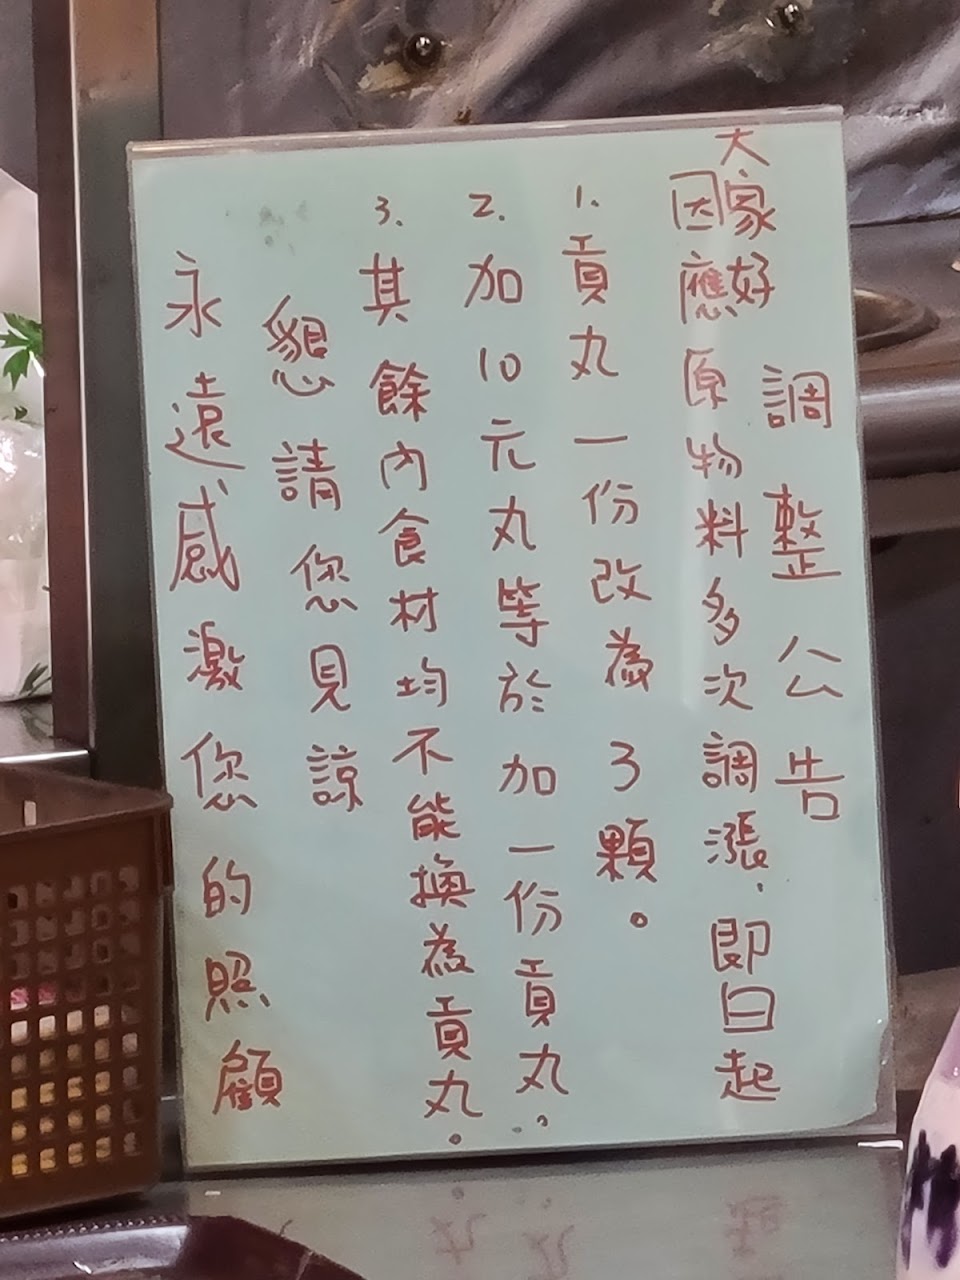 調整公告
大家好
因應原物料多次調漲，即日起
1. 貢丸一份改為3顆。
2. 加10元丸等於加一份貢丸.
3. 其餘內食材均不能換為貢丸。
懇請您見諒
永遠感激您的照顧